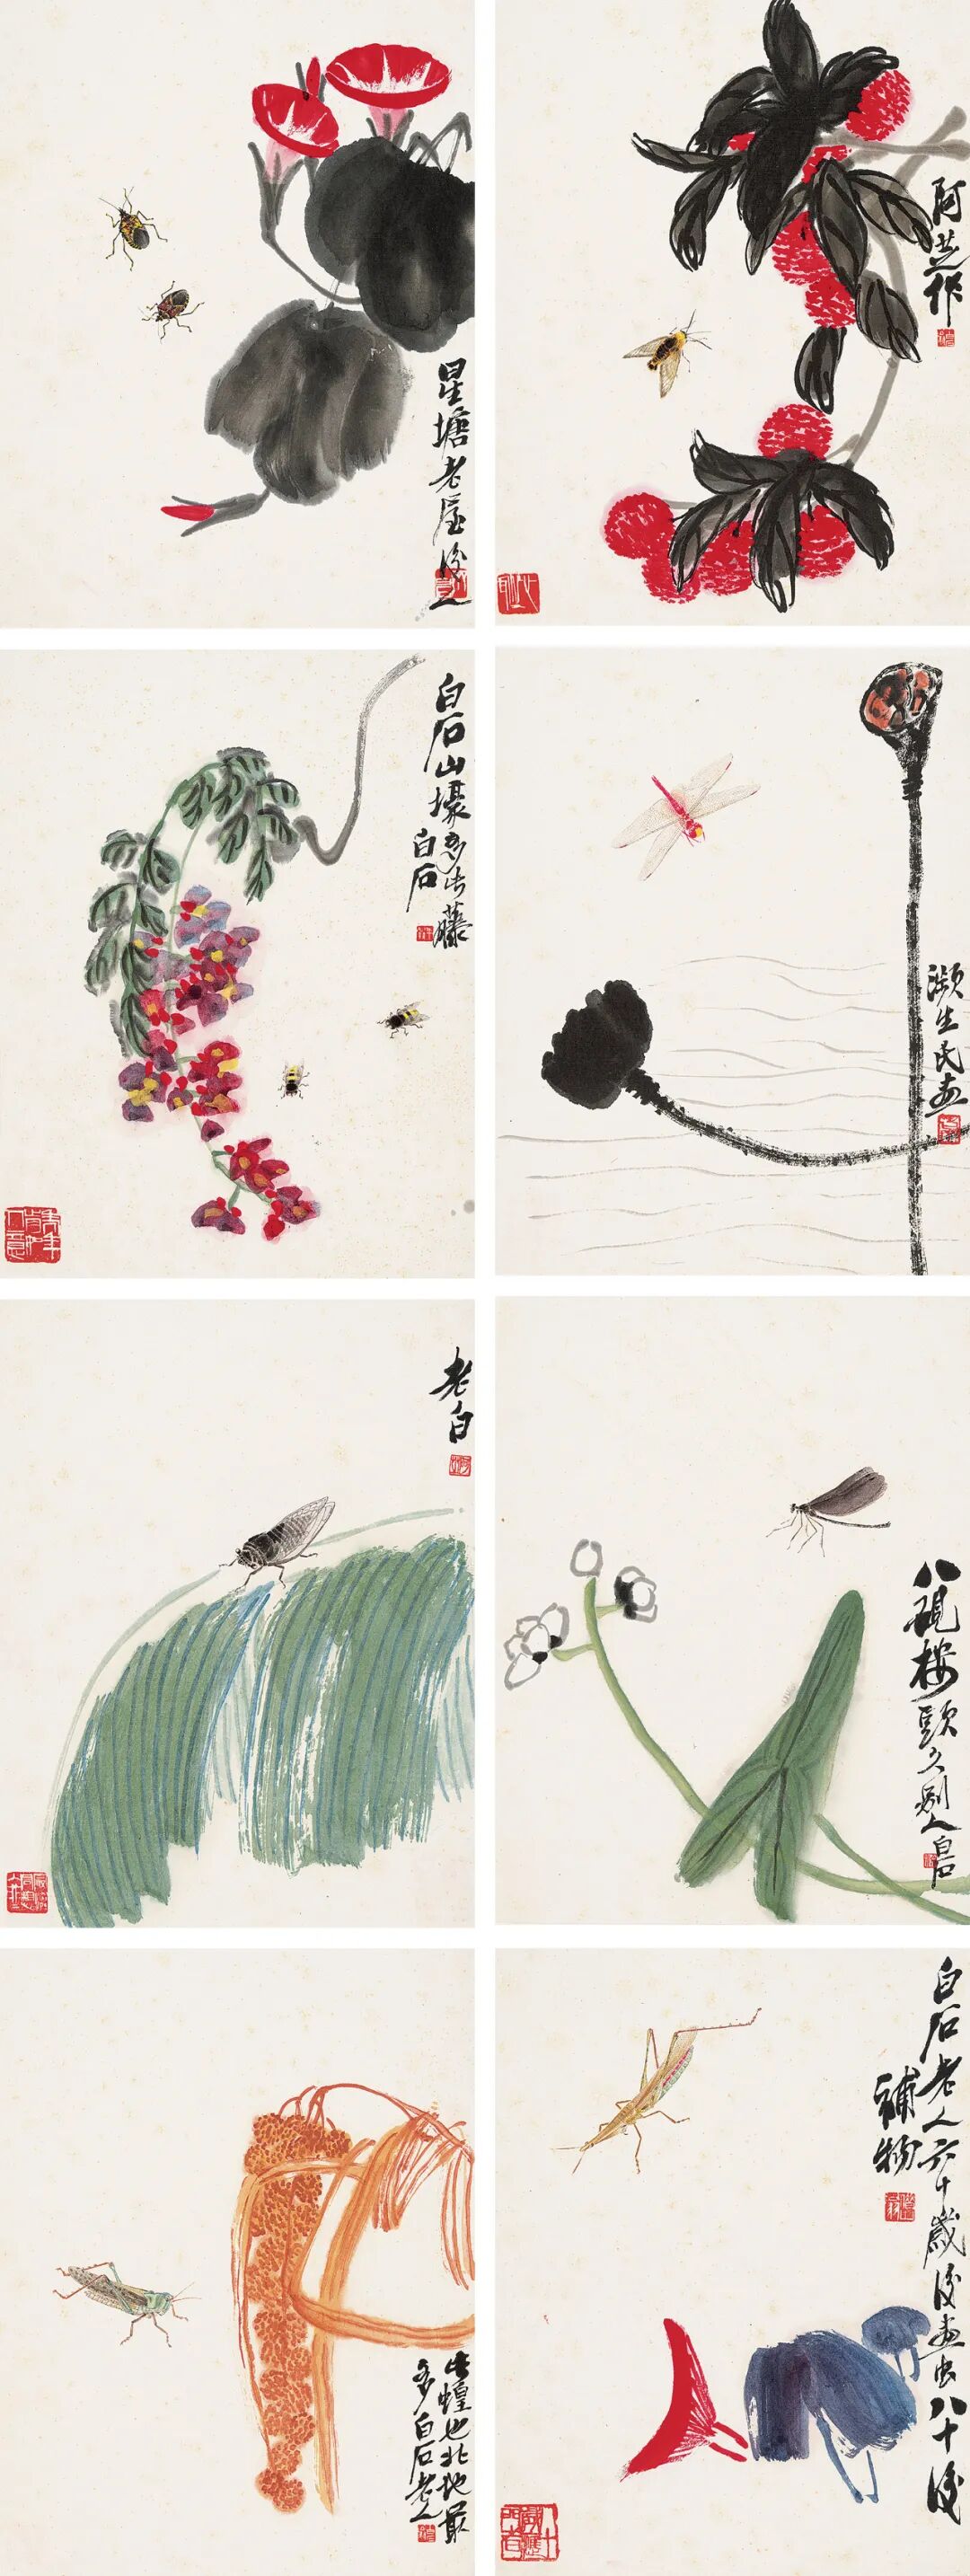 星塘老屋後人
阿芝作
白石山壕多此藤
白石
瀕生民畫
老白
八硯樓頭久別人白石
此蝗也北地最
多白石老人
白石老人六十歲後畫虫八十後
補物